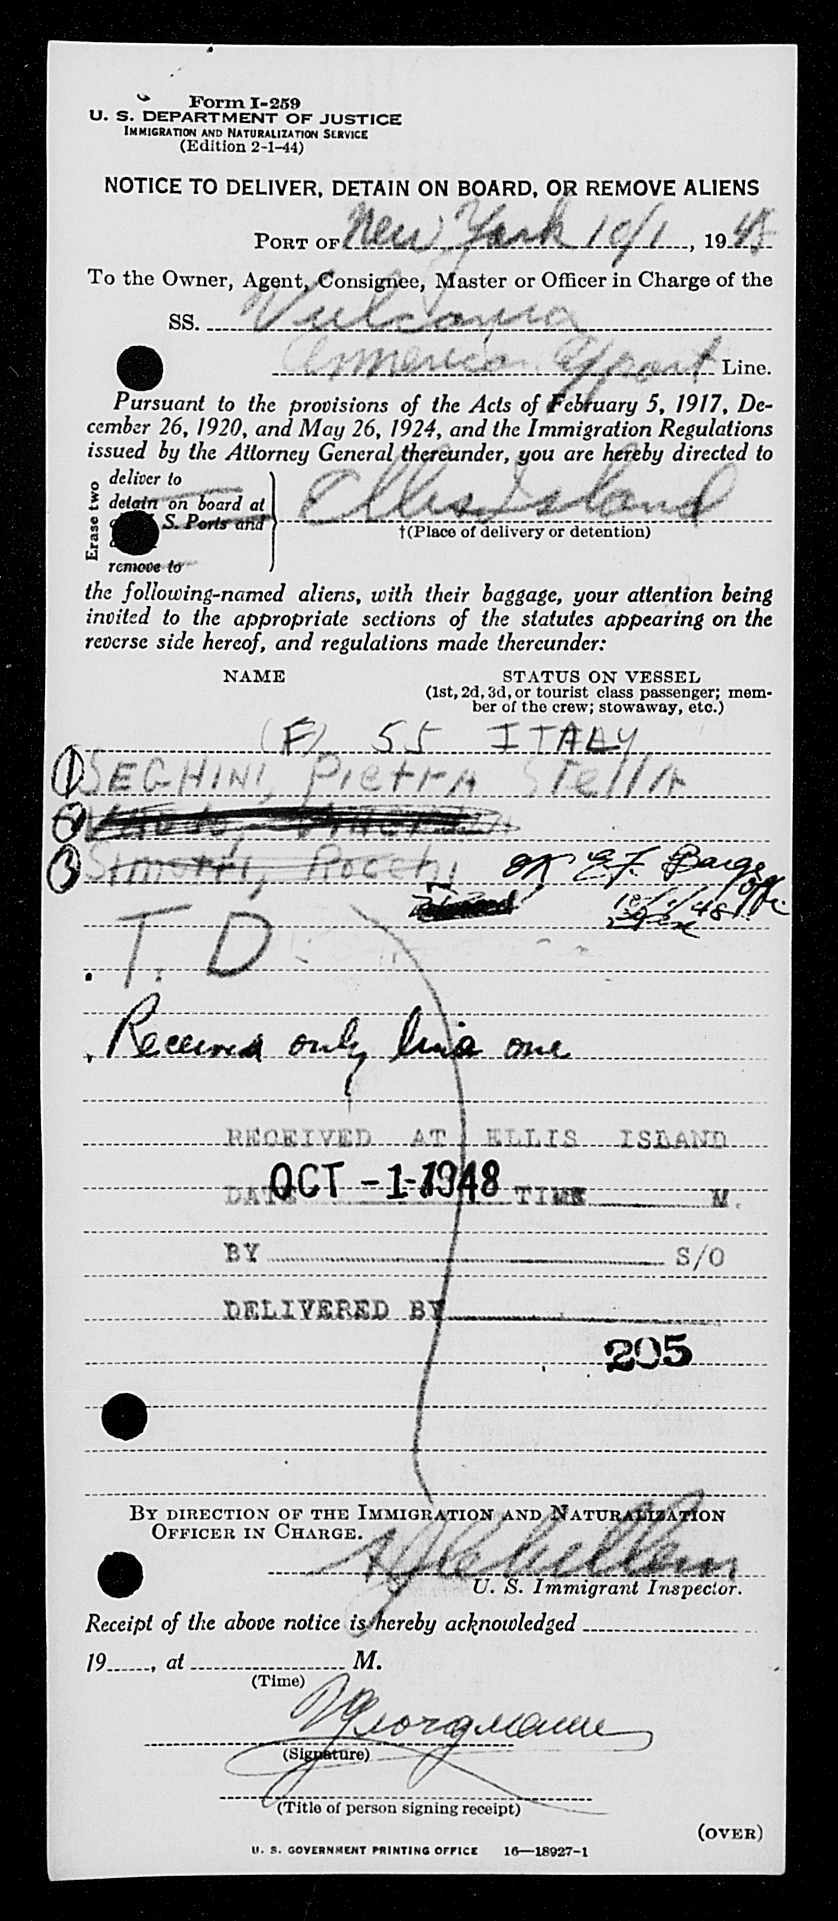 Form I-259
U. S. DEPARTMENT OF JUSTICE
IMMIGRATION AND NATURALIZATION SERVICE
(Edition 2-1-44)
NOTICE TO DELIVER, DETAIN ON BOARD, OR REMOVE ALIENS
PORT OF New York 10/1, 1948
To the Owner, Agent, Consignee, Master or Officer in Charge of the
SS. Vulcania
American Export Line.
Pursuant to the provisions of the Acts of February 5, 1917, De-
cember 26, 1920, and May 26, 1924, and the Immigration Regulations
issued by the Attorney General thereunder, you are hereby directed to
Erase two
deliver to
detain on board at
S. Ports and
remove to
Ellis Island
†(Place of delivery or detention)
the following-named aliens, with their baggage, your attention being
invited to the appropriate sections of the statutes appearing on the
reverse side hereof, and regulations made thereunder:
NAME STATUS ON VESSEL
(1st, 2d, 3d, or tourist class passenger; mem-
ber of the crew; stowaway, etc.)
(F) 55 ITALY
1 SEGHINI, PietrA STellA
2
3 Simotti, Rocchi OK
10/1/48
T. D
Received only line one
RECEIVED AT ELLIS ISLAND
DATE OCT -1-1948 TIME M.
BY S/O
DELIVERED BY
205
BY DIRECTION OF THE IMMIGRATION AND NATURALIZATION
OFFICER IN CHARGE.
U. S. Immigrant Inspector.
Receipt of the above notice is hereby acknowledged
19 , at M.
(Time)
(Signature)
(Title of person signing receipt)
(OVER)
U. S. GOVERNMENT PRINTING OFFICE 16—18927-1